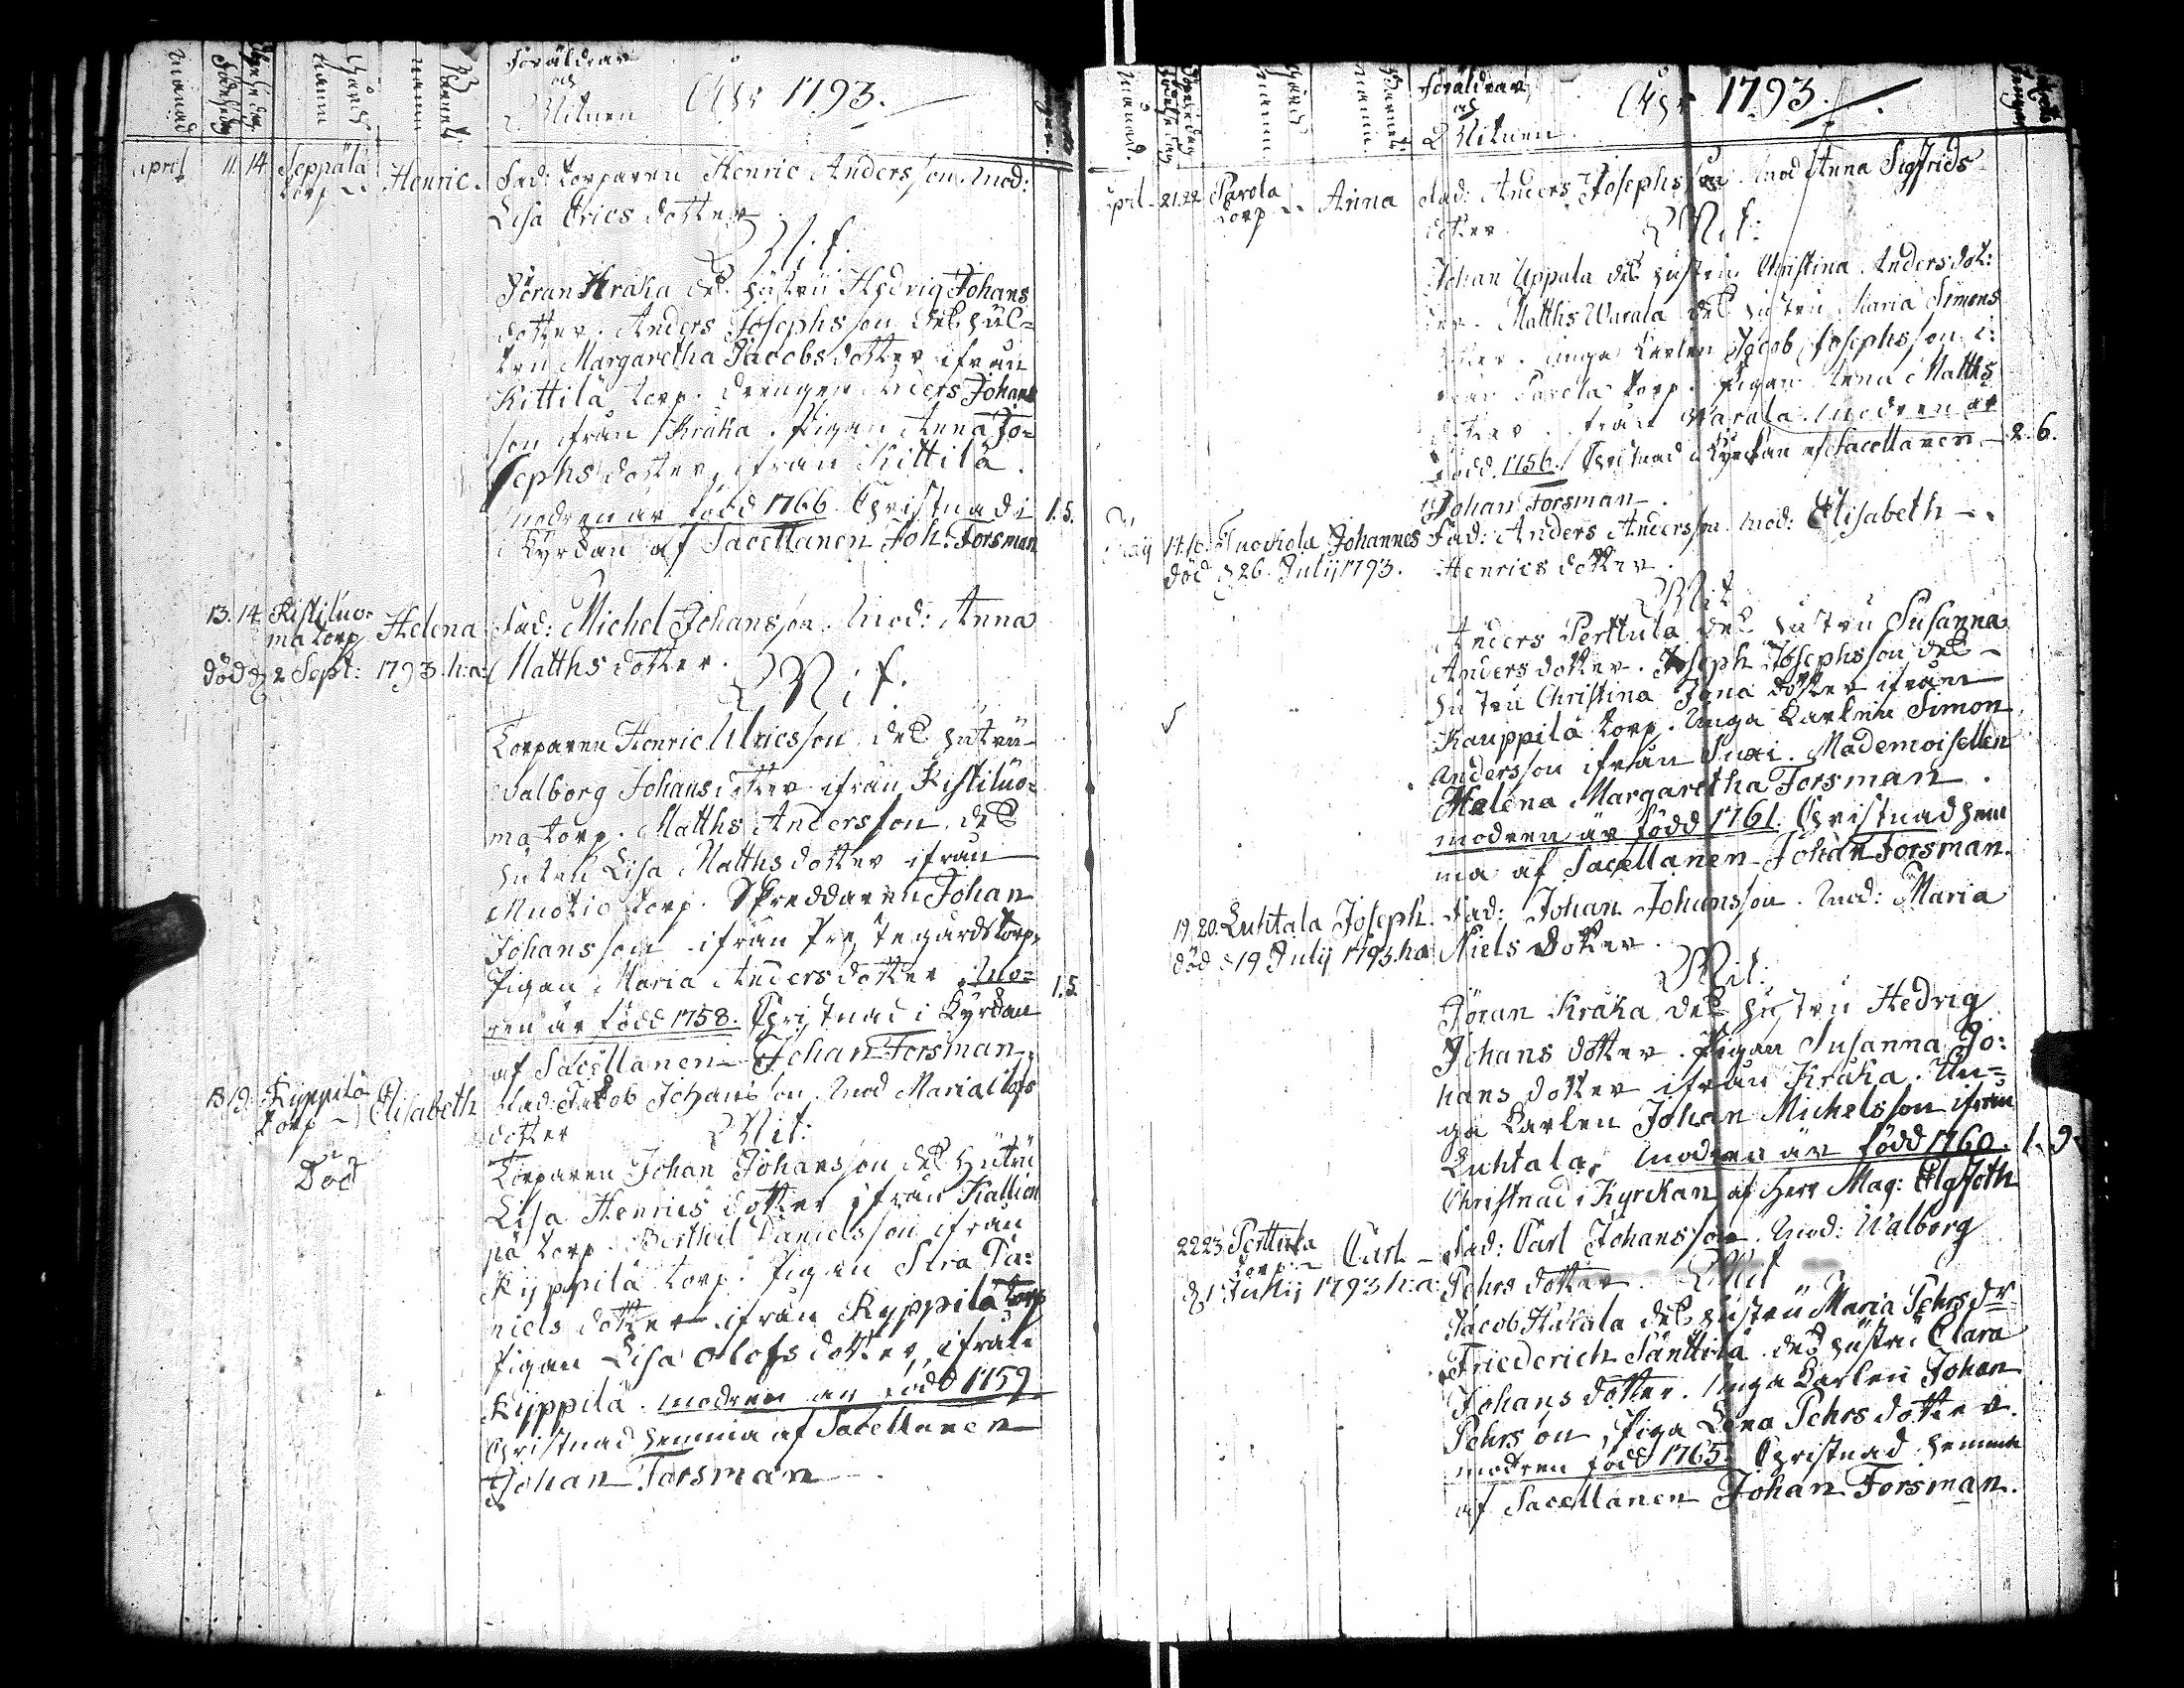 Månad
Födelsedag
Döpelsedag
Gårds namn
Barnets namn
Föräldrar
och
Witnen
Åhr 1793.
April 11. 14. Seppälä
torp
Henric.
Fad: Torparen Henric Andersson. Mod:
Lisa Ericsdotter
Wit:
Jöran Kraka des hustru Hedvig Johans
dotter. Anders Josephsson des hus=
tru Margaretha Jacobsdotter ifrån
Kittilä torp. Drengen Anders Johans
son ifrån Kraka. Pigan Anna Jo=
sephsdotter, ifrån Kittilä.
Modren är född 1766. Christnad i
Kyrckan af Sacellanen Joh: Forsman
1. 5.
13. 14. Ristiluo=
ma torp
Helena
död d 2 Sept: 1793. h:a:
Fad: Michel Johansson. Mod: Anna
Matthsdotter.
Wit.
Torparen Henric Ulricsson des hustru
Valborg Johansdotter ifrån Ristiluo=
ma torp. Matths Andersson, des
hustru Lisa Matthsdotter ifrån
Muotio torp. Skreddaren Johan
Johansson ifrån Prestegårds torp.
Pigan Maria Andersdotter. Mo=
ren är född 1758. Christnad i Kyrckan
af Sacellanen Johan Forsman.
1. 5.
18. 19. Kyppilä
torp
Elisabeth
Död
Fad: Jakob Johansson. Mod Maria Olofs
dotter
Wit:
Torparen Johan Johansson des hustru
Lisa Henricsdotter ifrån Kallion
pä torp. Berthil Danielsson ifrån
Kyppilä torp. Pigan Sara Da:
nielsdotter ifrån Kyppilä torp
Pigan Lisa Olofsdotter, ifrån
Kyppilä. modren är född 1759
Christnad hemma af Sacellanen
Johan Forsman
Månad.
Gårds namn
Barnets namn.
Föräldrar
och
Witnen.
Åhr 1793.
April. 21. 22. Parola
torp
Anna
Fad: Anders Josephsson. Mod Anna Sigfrids
dotter.
Wit:
Johan Uppala des hustru Christina Andersdot:
ter. Matths Warala des hustru Maria Simons
dotter. unga Karlen Jacob Josephsson i:
från Parola torp. Pigan Anna Matths
dotter. från Warala. Modren är
född. 1756. Christnad i Kyrckan af Sacellanen
Johan Forsman.
2. 6.
Maij 14. 16. Johannes
död d 26. Julij 1793.
Fad: Anders Andersson. Mod: Elisabeth
Henricsdotter.
Wit
Anders Perttula des hustru Susanna
Andersdotter. Joseph Josephsson des
hustru Christina Jonadotter ifrån
Kauppila torp. Unga Karlen Simon
Andersson ifrån Suxi. Mademoisellen
Helena Margaretha Forsman.
modren är född 1761. Christnad hem
ma af Sacellanen Johan Forsman.
19. 20. Luhtala Joseph.
död d 19 Julij 1793. h:a
Fad: Johan Johansson. Mod: Maria
Nielsdotter.
Wit:
Jöran Kraka, des hustru Hedvig
Johansdotter. Pigan Susanna Jo:
hansdotter ifrån Kraka. Un=
ga Karlen Johan Michelsson ifrån
Luhtala. Modren är född 1760.
1. 9.
Christnad i Kyrckan af Herr Mag: Elgfoth
22 23. Perttula
torp
Carl
d 1 Julij 1793 h:a:
Fad: Carl Johansson. Mod: Walborg
Pehrsdotter.
Wit
Jacob Hakala des hustru Maria Pehrs dr
Friederich Sänttilä des hustru Clara
Johansdotter. Unga Karlen Johan
Pehrsson, Piga Lena Pehrsdotter.
modren född 1765. Christnad hemma
af Sacellanen Johan Forsman.